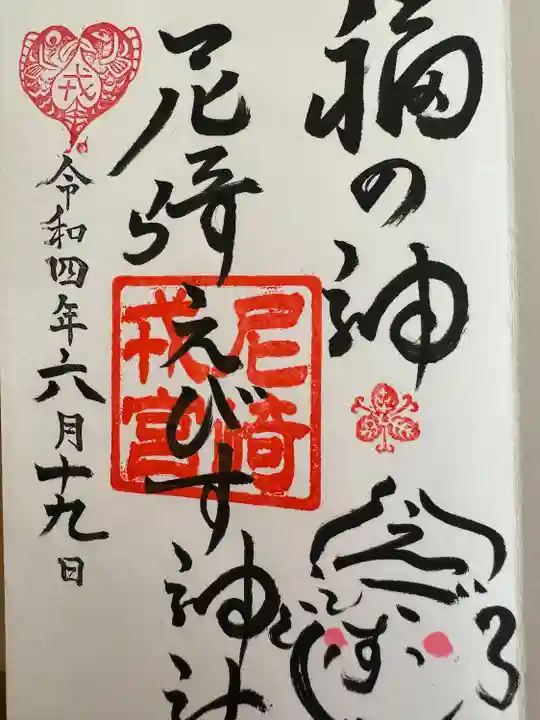 福の神
尼崎えびす神社
尼崎
戎宮
戎
令和四年六月十九日